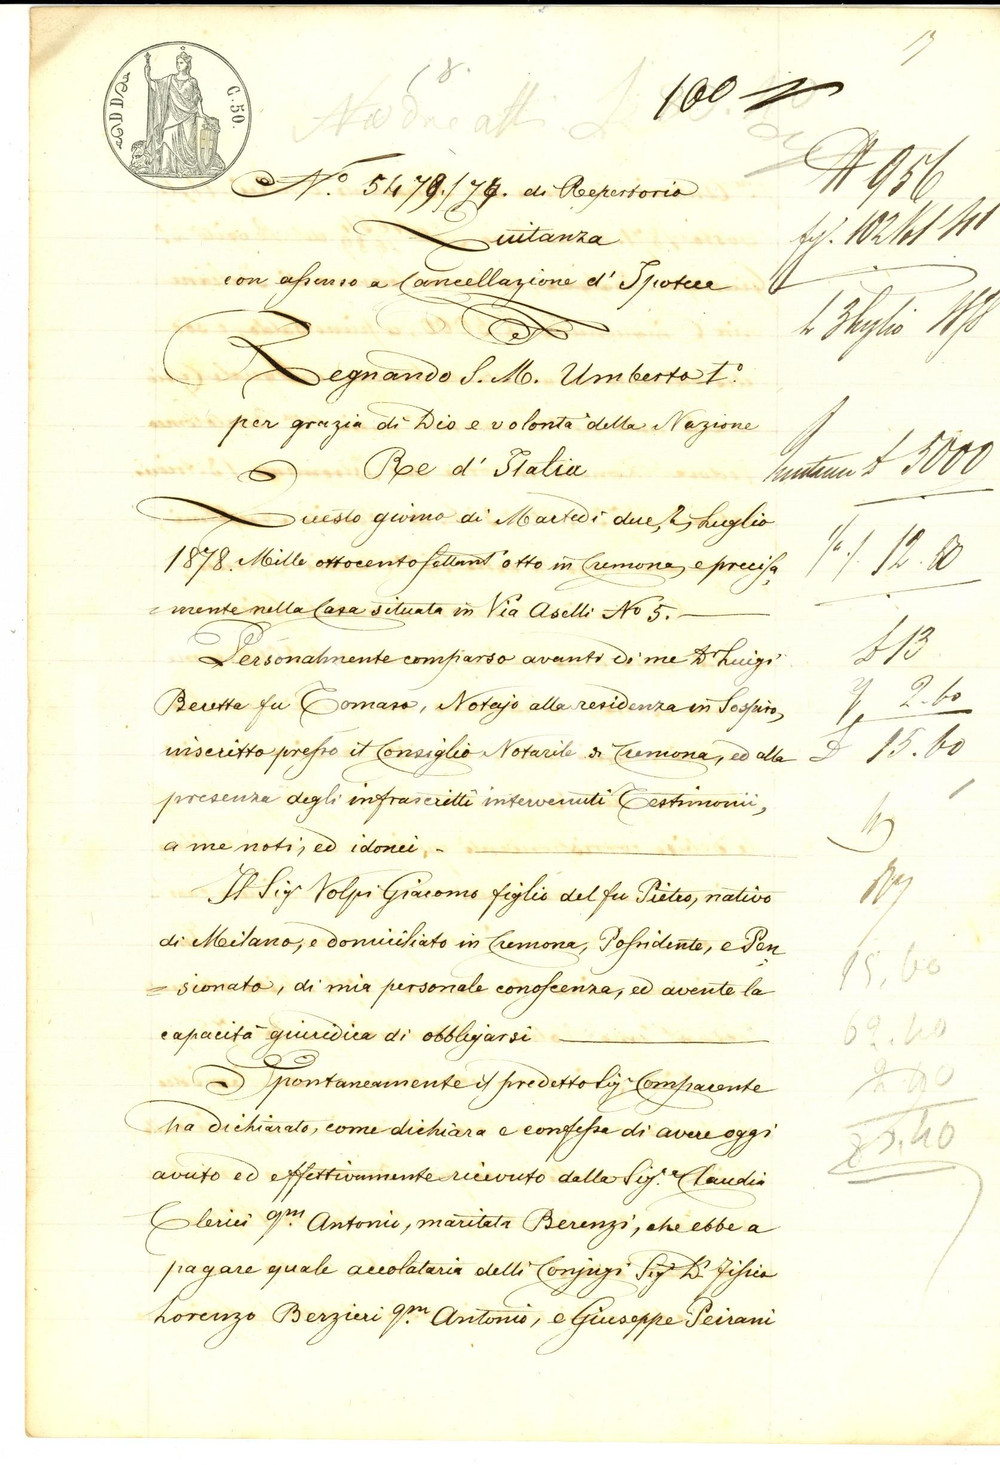 C. 50.
100
N.º 5479./74. di Repertorio
Quitanza
con assenso a Cancellazione d' Ipotece
Regnando S. M. Umberto 1.º
per grazia di Dio e volontà della Nazione
Re d' Italia
Questo giorno di Martedì due, 2, Luglio
1878. Mille ottocento settant' otto in Cremona, e precisa
=mente nella Casa situata in Via Aselli No 5.
Personalmente comparso avanti di me Dr Luigi
Beretta fu Tomaso, Notajo alla residenza in Sospiro,
inscritto presso il Consiglio Notarile di Cremona, ed alla
presenza degli infrascritti intervenuti Testimonii,
a me noti, ed idonei, -
Il Sigr Volpi Giacomo figlio del fu Pietro, nativo
di Milano, e domiciliato in Cremona, Possidente, e Pen
=sionato, di mia personale conoscenza, ed avente la
capacità giuridica di obbligarsi
Spontaneamente il predetto Sigr Comparente
ha dichiarato, come dichiara e confessa di avere oggi
avuto ed effettivamente ricevuto dalla Sig.a Claudia
Clerici qm. Antonio, maritata Berenzi, che ebbe a
pagare quale accolataria delli Conjugi Sigr Dr Fisico
Lorenzo Berzieri qm. Antonio, e Giuseppe Peirani
N 956
fog. 102
L 3 luglio 1878
L 5000
12.60
L 13
2.60
L 15.60
15.60
62.40